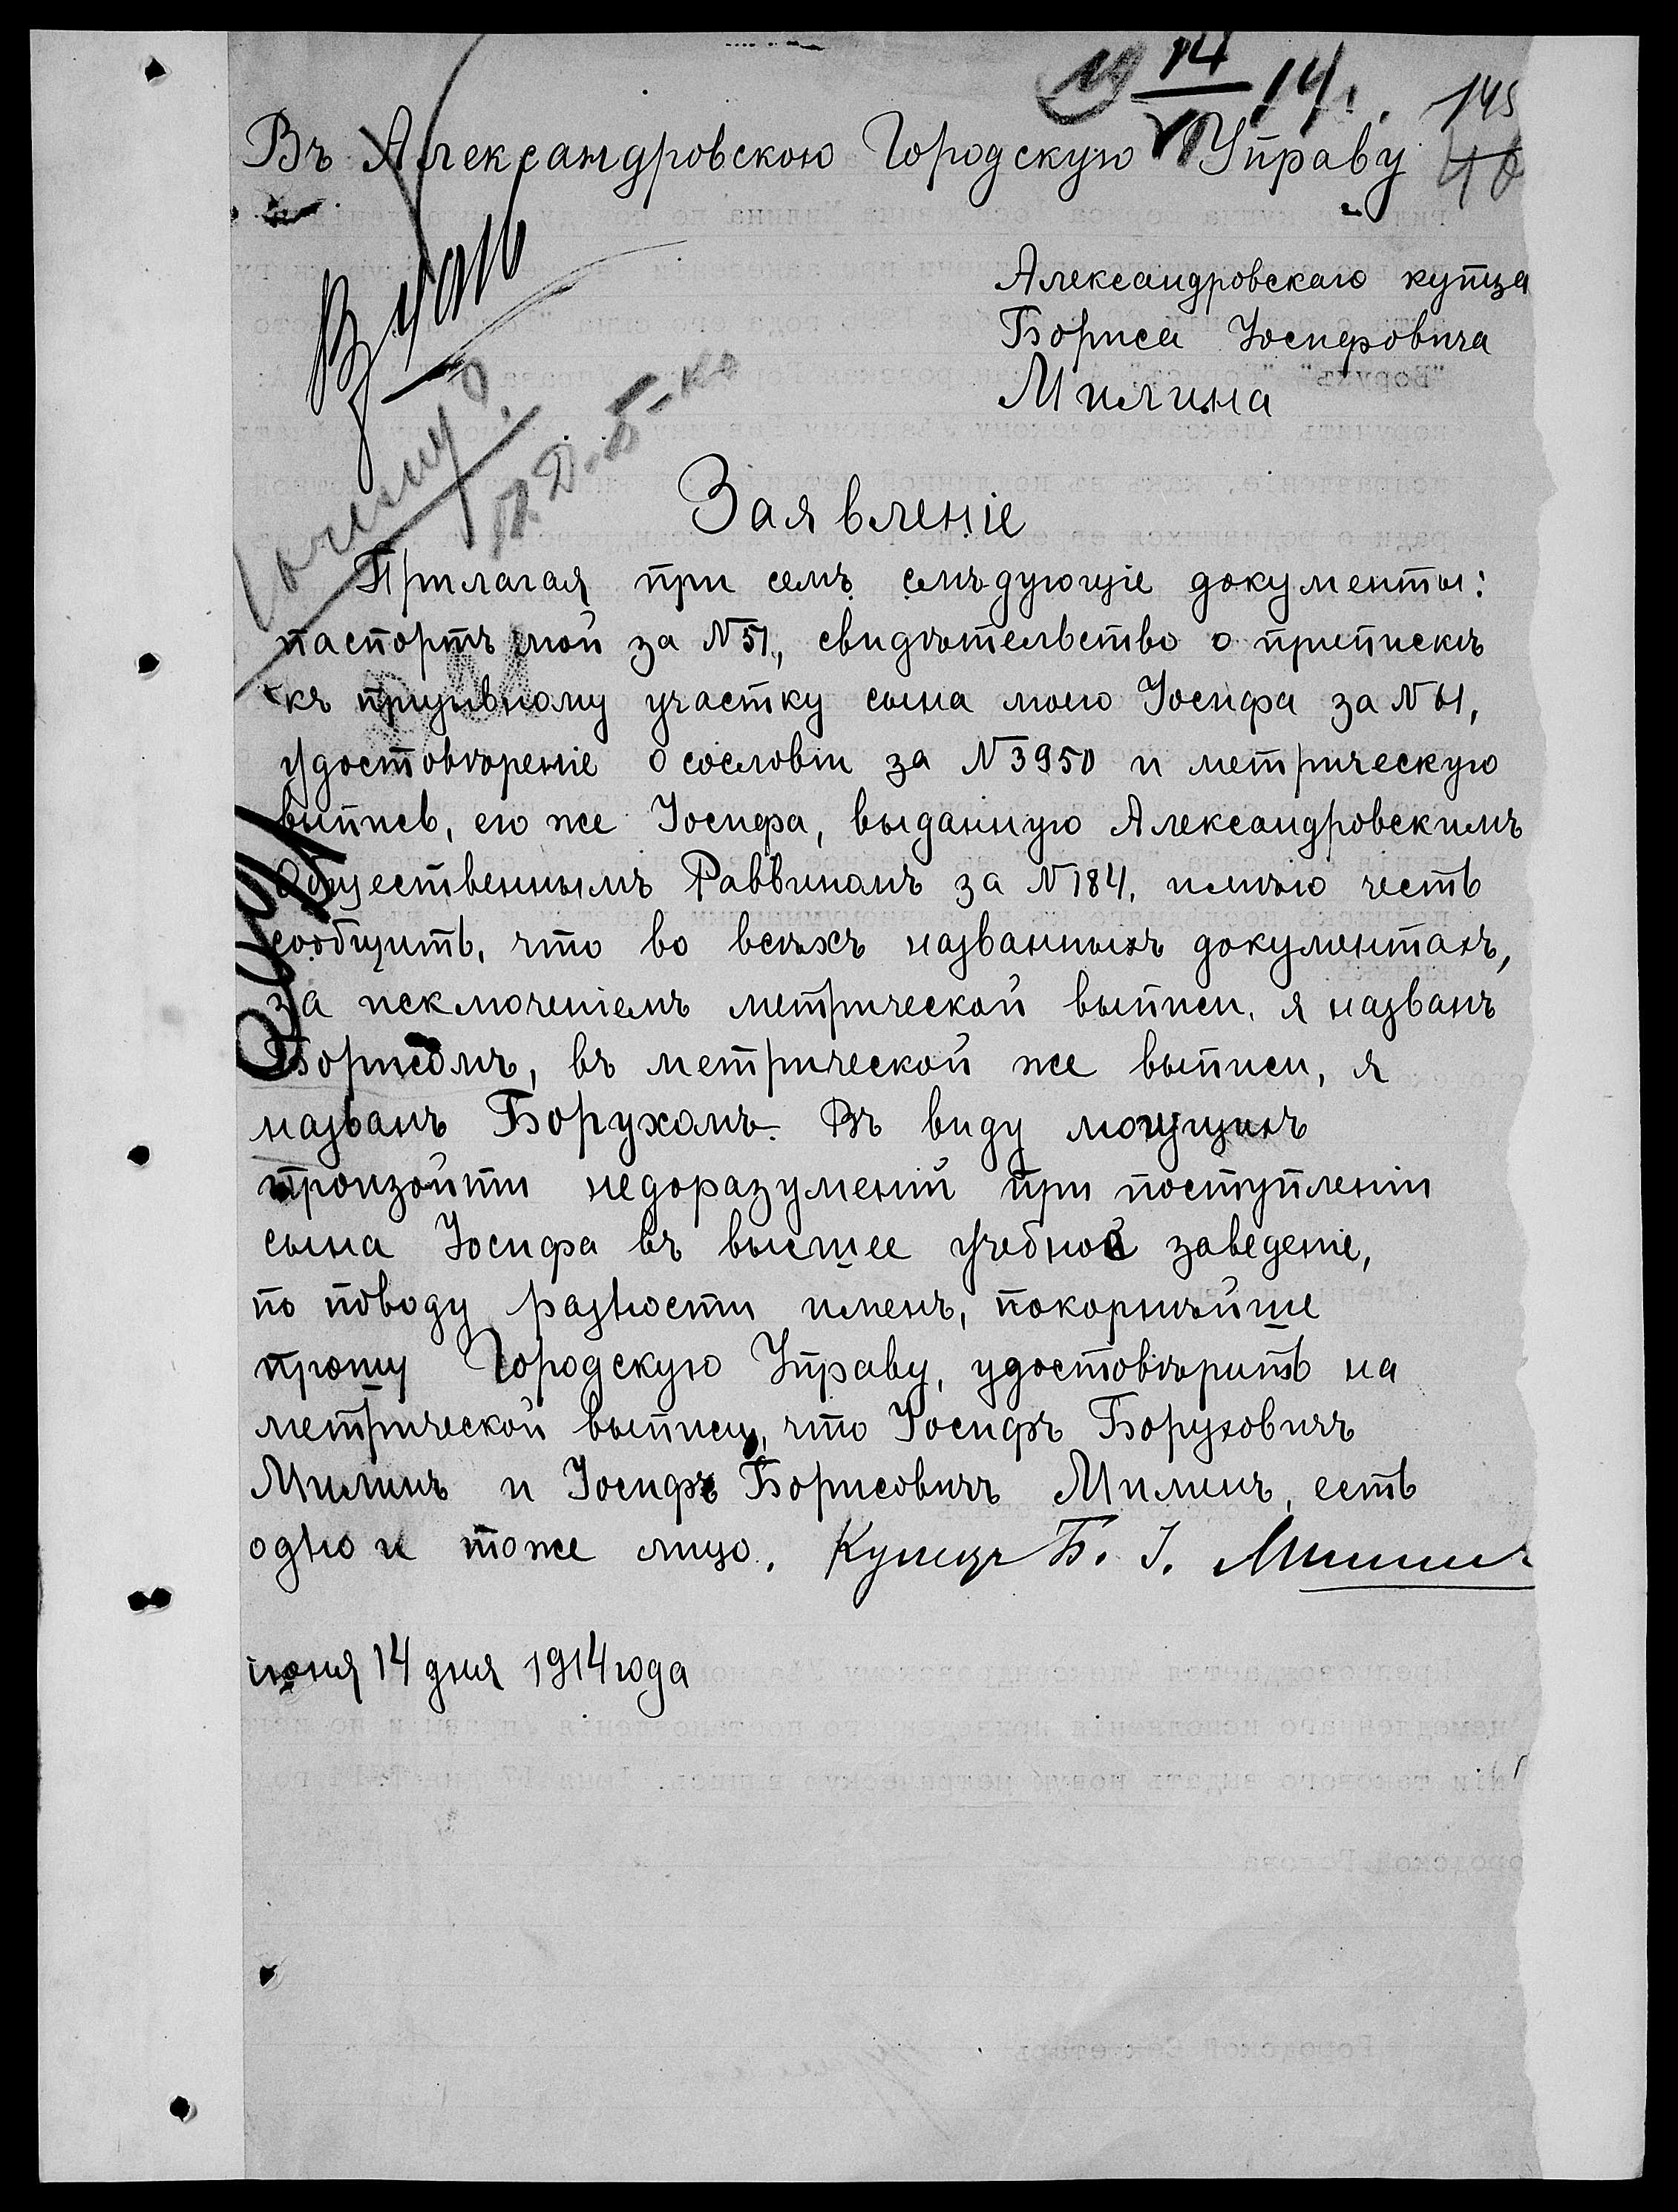 14
VI 14 г. 145
Въ Александровскою Городскую Управу
Александровскаго купца
Бориса Іосифовича
Милина
Заявленіе
Прилагая при семъ слѣдующіе документы:
паспортъ мой за №51, свидѣтельство о припискѣ
къ призывному участку сына моего Іосифа за №61,
удостовѣреніе о сословіи за №3950 и метрическую
выпись, его же Іосифа, выданную Александровскимъ
Общественнымъ Раввиномъ за №184, имѣю честь
сообщить, что во всѣхъ названныхъ документахъ,
за исключеніемъ метрической выписи, я названъ
Борисомъ, въ метрической же выписи, я
названъ Борухомъ. Въ виду могущихъ
произойти недоразуменій при поступленіи
сына Іосифа въ высшее учебное заведеніе,
по поводу разности именъ, покорнѣйше
прошу Городскую Управу, удостовѣрить на
метрической выписи, что Іосифъ Боруховичъ
Милинъ и Іосифъ Борисовичъ Милинъ, есть
одно и тоже лицо. Купецъ Б. І. Милинъ
іюня 14 дня 1914 года